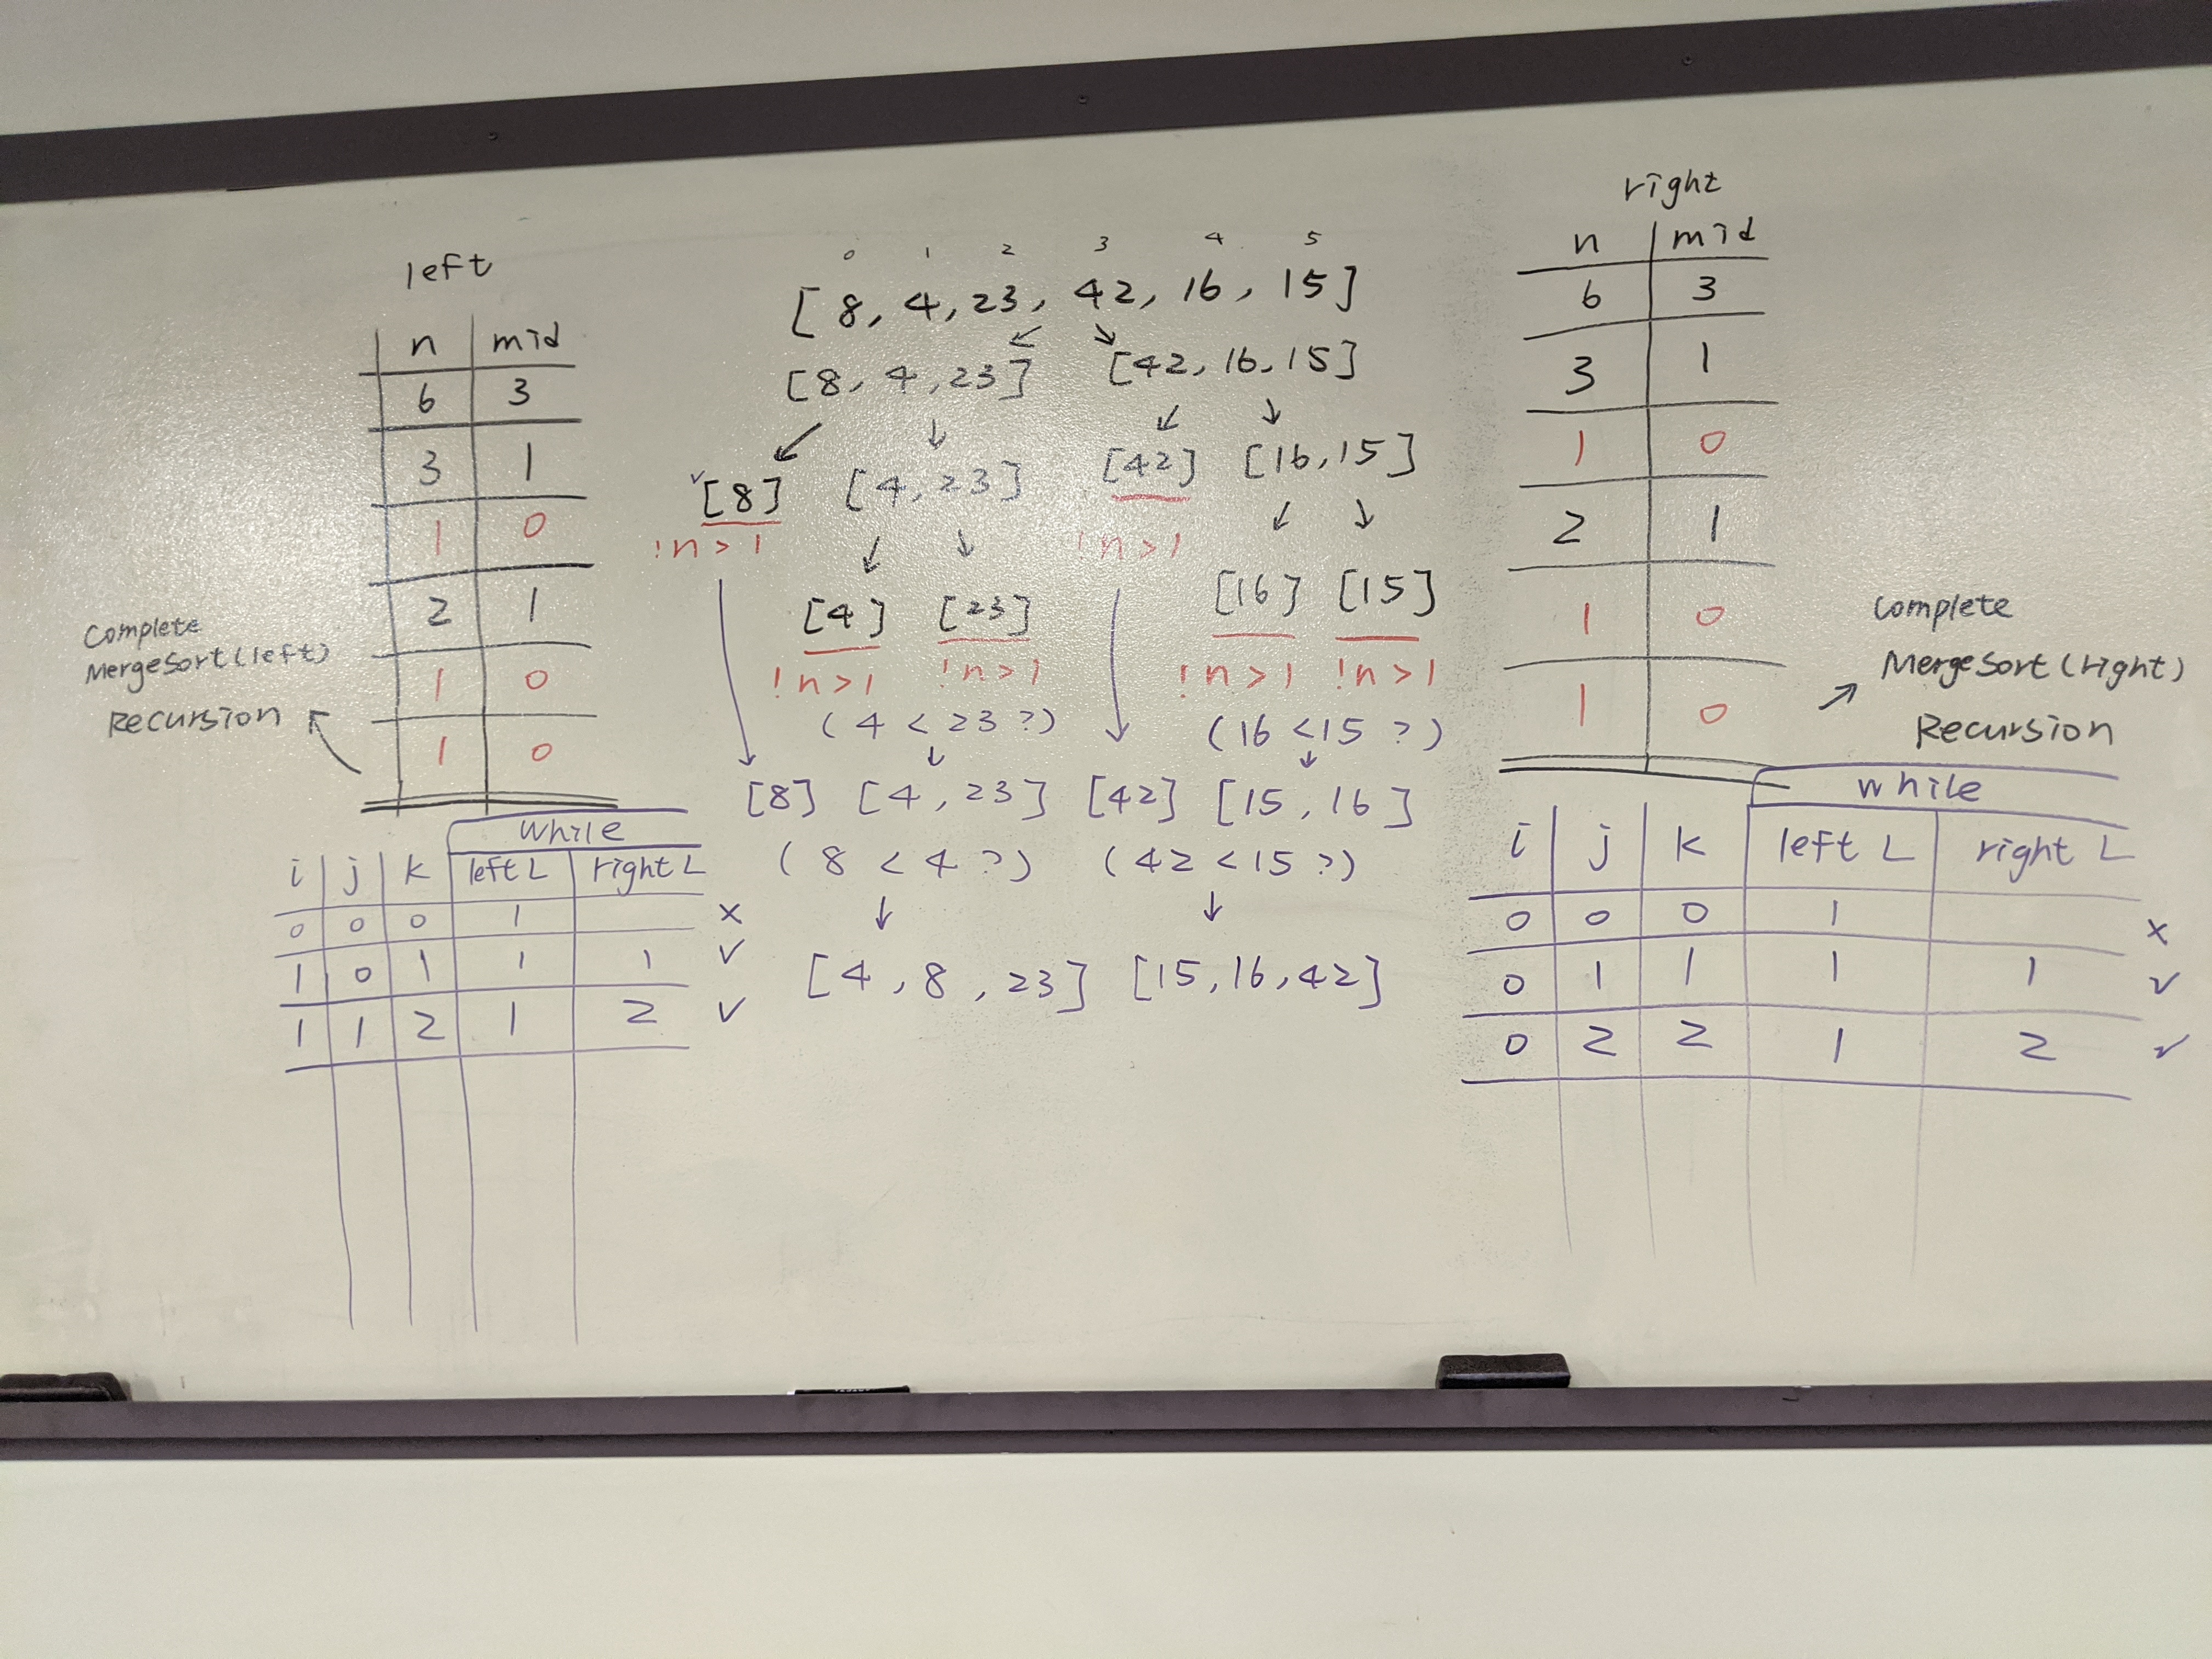 left
n mid
6 3
3 1
1 0
2 1
1 0
1 0
Complete
MergeSort(left)
Recursion
while
i j k left L right L
0 0 0 1 x
1 0 1 1 1 ✓
1 1 2 1 2 ✓
0 1 2 3 4 5
[8, 4, 23, 42, 16, 15]
↙ ↘
[8, 4, 23] [42, 16, 15]
↙ ↓ ↙ ↓
✓[8] [4, 23] [42] [16, 15]
!n>1 ↙ ↓ !n>1 ↙ ↓
[4] [23] [16] [15]
!n>1 !n>1 !n>1 !n>1
(4 < 23 ?) (16 < 15 ?)
↓ ↓ ↓ ↓
[8] [4, 23] [42] [15, 16]
(8 < 4 ?) (42 < 15 ?)
↓ ↓
[4, 8, 23] [15, 16, 42]
right
n mid
6 3
3 1
1 0
2 1
1 0
1 0
Complete
MergeSort(right)
Recursion
while
i j k left L right L
0 0 0 1 x
0 1 1 1 1 ✓
0 2 2 1 2 ✓